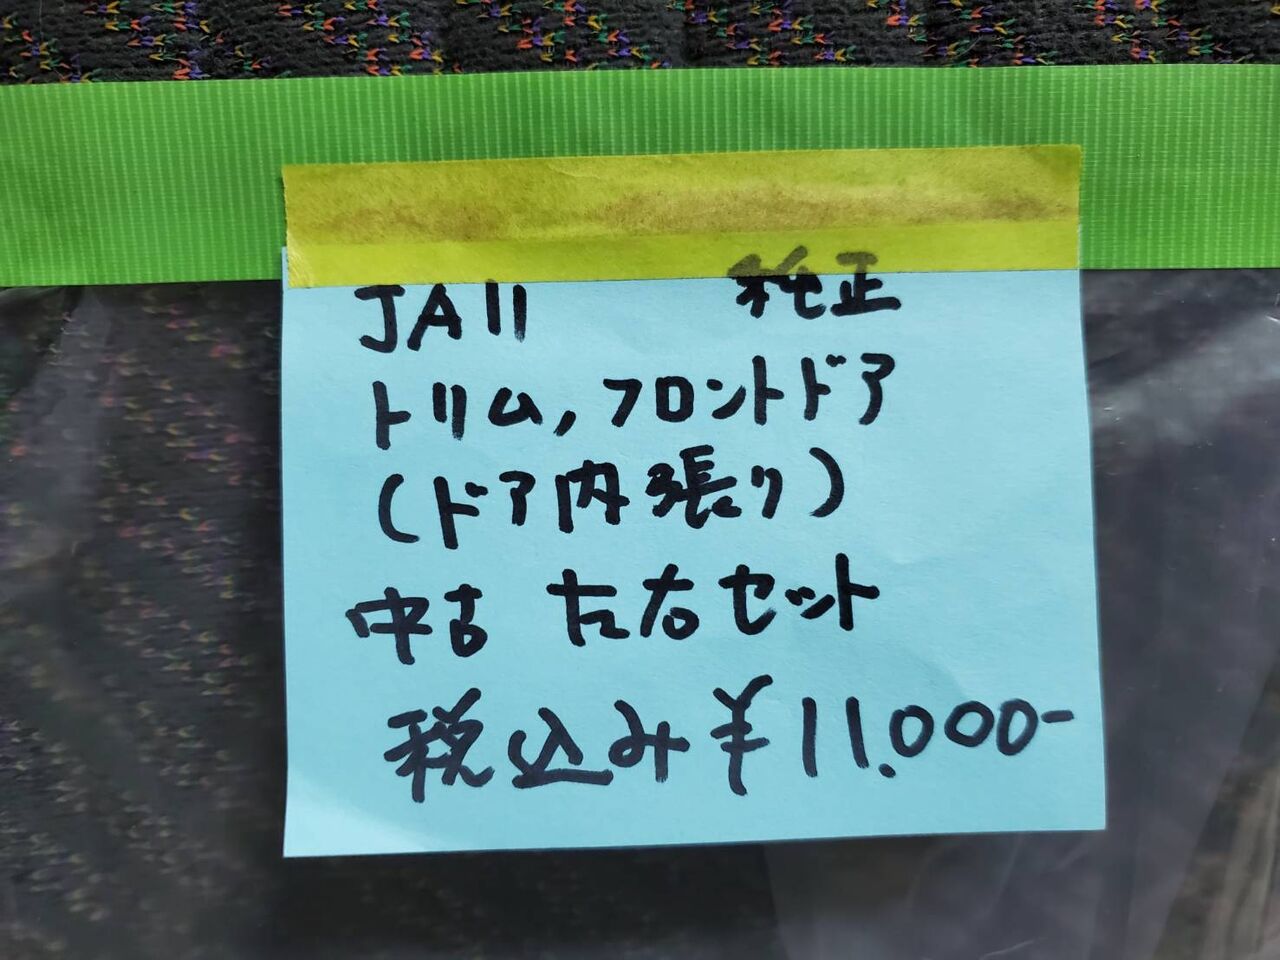 JA11 純正
トリム,フロントドア
(ドア内張り)
中古 左右セット
税込み¥11.000-